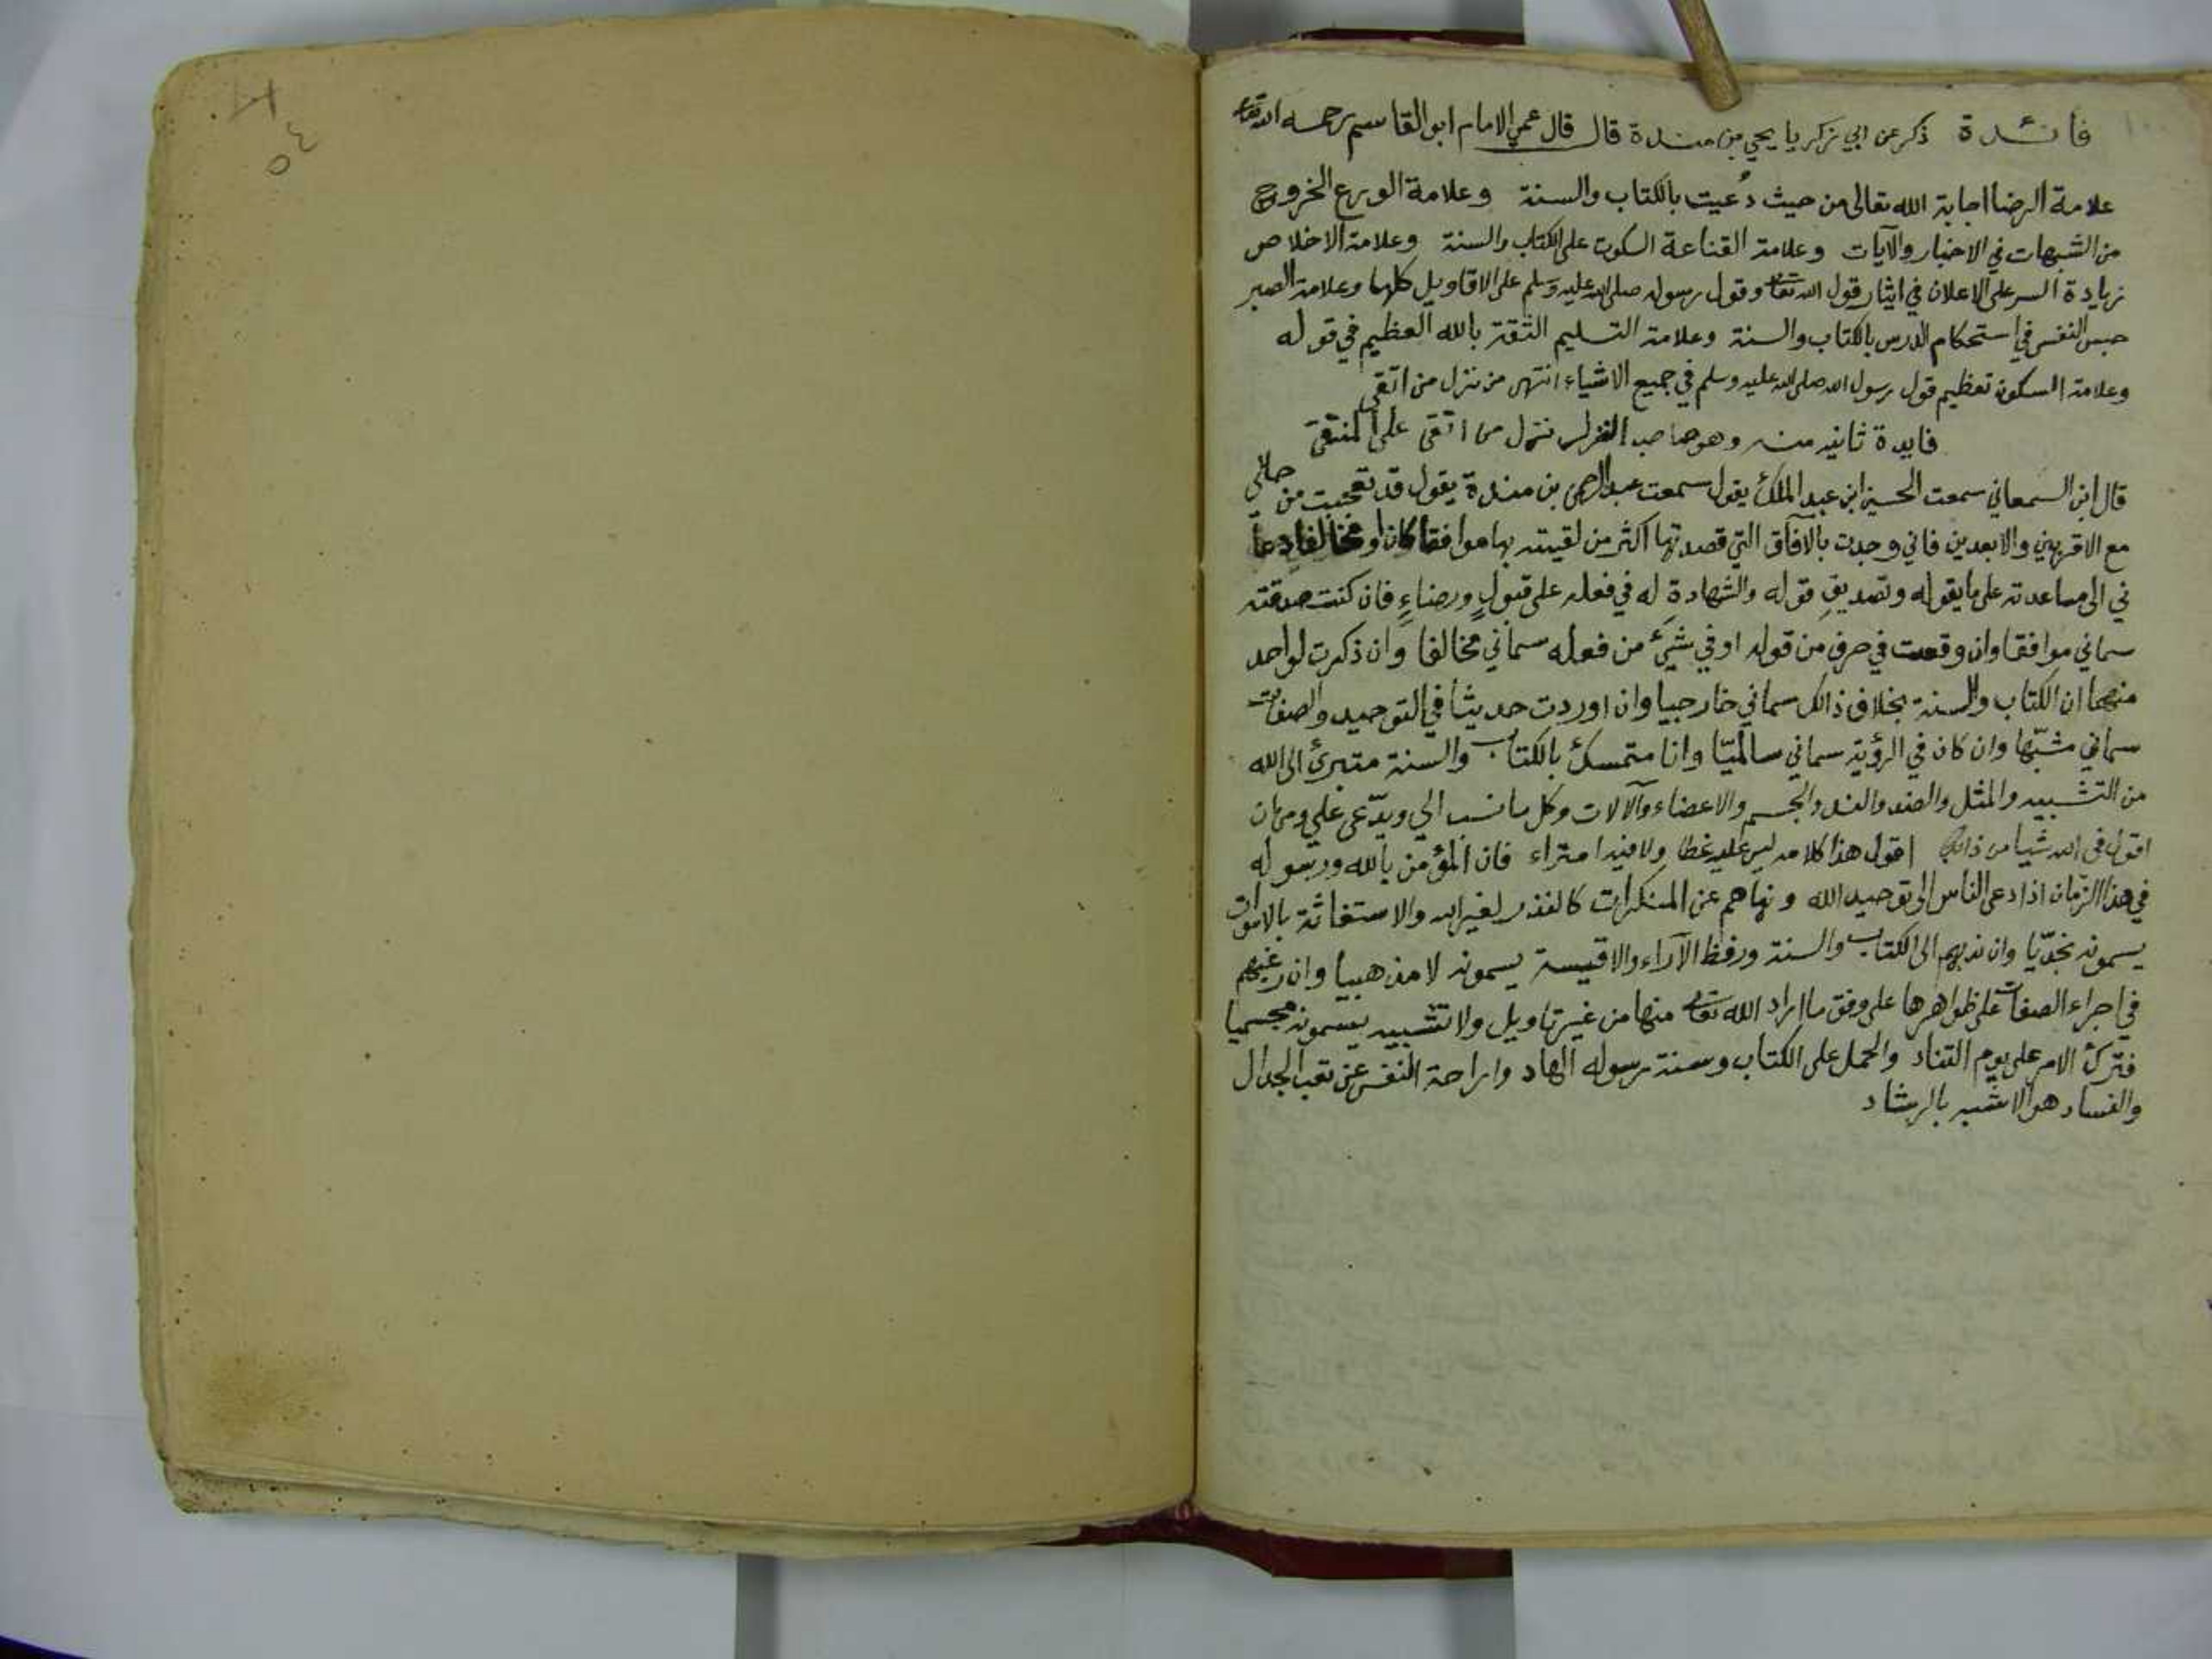 فائدة ذكر عن ابي زكريا يحيى بن مندة قال قال عمي الامام ابو القاسم رحمه الله تعا
علامة الرضا اجابة الله تعالى من حيث دُعيت بالكتاب والسنة وعلامة الورع الخروج
من الشبهات في الاخبار والآيات وعلامة القناعة السكوت على الكتاب والسنة وعلامة الاخلاص
زيادة السر على الاعلان في ايثار قول الله تعا وقول رسوله صلى الله عليه وسلم على الاقاويل كلها وعلامة الصبر
حبس النفس في استحكام الدرس بالكتاب والسنة وعلامة التسليم الثقة بالله العظيم في قوله
وعلامة السكون تعظيم قول رسول الله صلى الله عليه وسلم في جميع الاشياء انتهى من نزل من اتقى
فايدة ثانيه منه وهو صاحب النزل نزل من اتقى على المنتقى
قال ابن السمعاني سمعت الحسين ابن عبد الملك يقول سمعت عبد الرحمن بن مندة يقول قد تعجبت من حالي
مع الاقربين والابعدين فاني وجدت بالآفاق التي قصدتها اكثر من لقيته بها موافقا كان او مخالفا دعا
ني الى مساعدته على ما يقوله وتصديقِ قوله والشهادة له في فعله على قبولٍ ورضاءٍ فان كنت صدقته
سماني موافقا وان وقعت في حرف من قوله او في شيئ من فعله سماني مخالفا وان ذكرت لواحد
منهما ان الكتاب والسنة بخلاف ذالك سماني خارجيا وان اوردت حديثا في التوحيد والصفات
سماني مشبّها وان كان في الرؤية سماني سالميّا وانا متمسك بالكتاب والسنة متبرئ الى الله
من التشبيه والمثل والضد والند والجسم والاعضاء والآلات وكل ما نسب الي ويدّعى علي ومن ان
اقول في الله شيا من ذالك اقول هذا كلامه ليس عليه غطا ولا فيه امتراء فان المؤمن بالله ورسوله
في هذا الزمان اذا دعى الناس الى توحيد الله ونهاهم عن المنكرات كالنذر لغير الله والاستغاثة بالاموات
يسمونه نجديّا وان ندبهم الى الكتاب والسنة ورفظ الآراء والاقيسة يسمونه لا مذهبيا وان رغبهم
في اجراء الصفات على ظواهرها على وفق ما اراد الله تعالى منها من غير تاويل ولا تشبيه يسمونه مجسميا
فترك الامر على يوم التناد والحمل على الكتاب وسنة رسوله الهاد واراحة النفس عن تعب الجدال
والفساد هو الاشبه بالرشاد